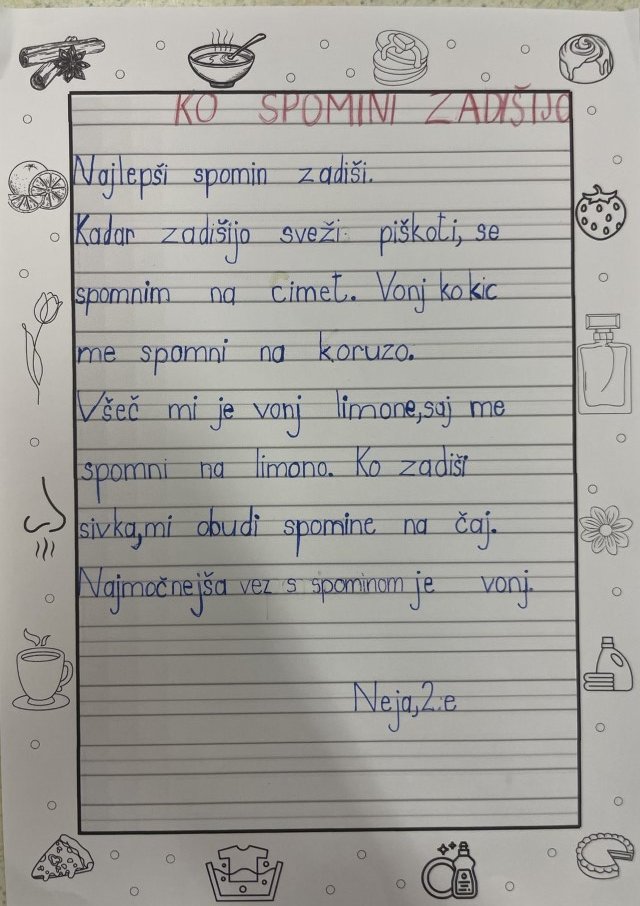 KO SPOMINI ZADIŠIJO
Najlepši spomin zadiši.
Kadar zadišijo sveži piškoti, se
spomnim na cimet. Vonj kokic
me spomni na koruzo.
Všeč mi je vonj limone, saj me
spomni na limono. Ko zadiši
sivka, mi obudi spomine na čaj.
Najmočnejša vez s spominom je vonj.
Neja, 2.e